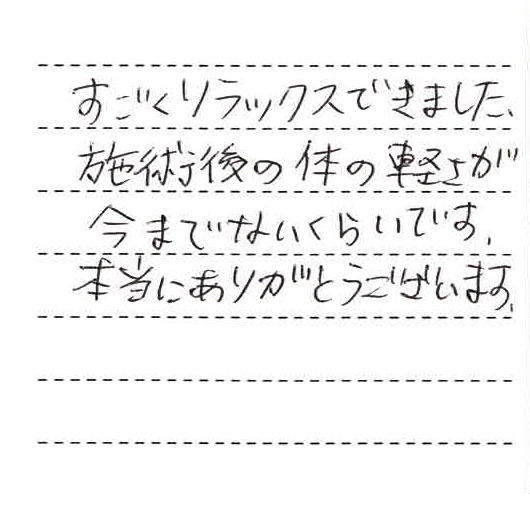 すごくリラックスできました、
施術後の体の軽さが
今までないくらいです、
本当にありがとうございます、